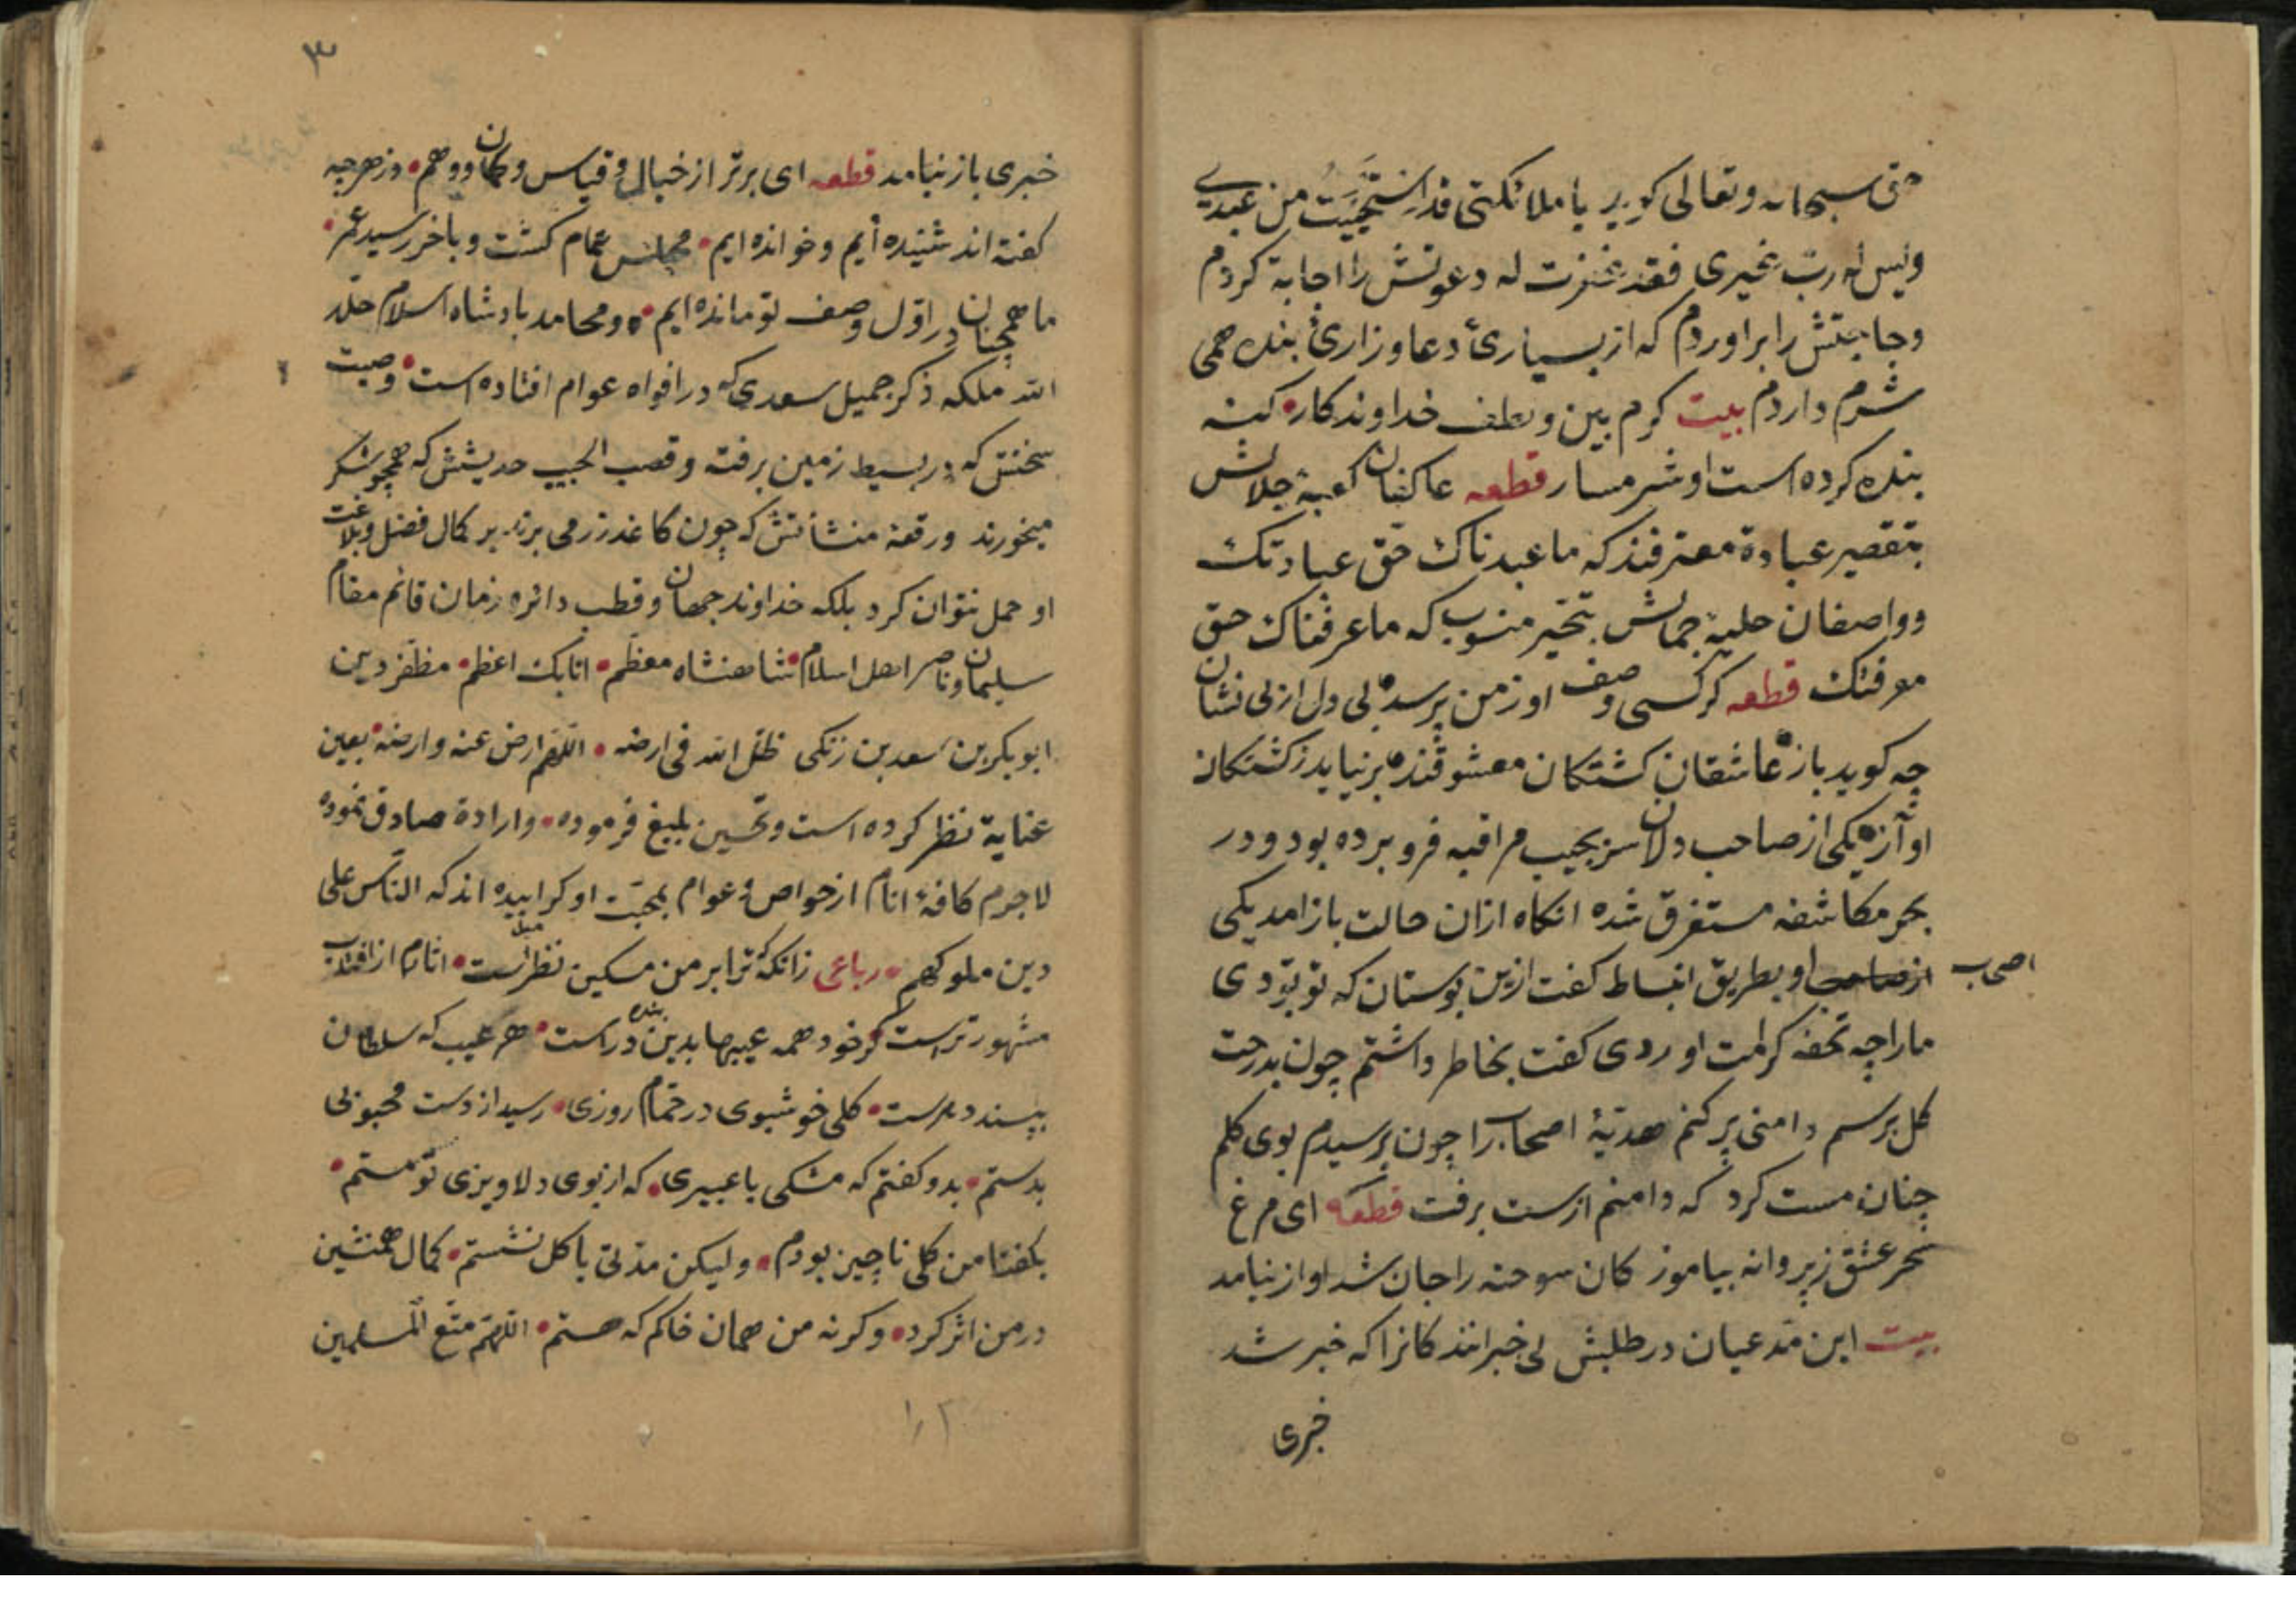 حق سبحانه وتعالی کوید یا ملائکتی قد استجییت من عبدی
ولیس له رب غیری فقد غفرت له دعوتش را اجابة کردم
وحاجتش را براوردم که از بسیاریٔ دعا وزاریٔ بنده همی
شرم داردم بیت کرم بین ولطف خداوندکار کنه
بنده کرده است او شرمسار قطعه عاکفان کعبهٔ جلالش
بتقصیر عبادة معترفند که ما عبدناک حق عبادتک
وواصفان حلیهٔ جمالش بتحیر منسوب که ما عرفناک حق
معرفتک قطعه کر کسی وصف او زمن پرسد بی دل از بی نشان
چه کوید باز عاشقان کشتکان معشوقند بر نیاید زکشتکان
اواز یکی از صاحب دلان سر بجیب مراقبه فرو برده بود ودر
بحر مکاشفه مستغرق شده انکاه ازان حالت باز امد یکی
اصحاب از صاحب او بطریق انبساط کفت ازین بوستان که تو بودی
مارا چه تحفه کرامت اوردی کفت بخاطر داشتم چون بدرخت
کل برسم دامنی پر کنم هدیهٔ اصحاب را چون برسیدم بوی کلم
چنان مست کرد که دامنم از ست برفت قطعه ای مرغ
سحر عشق زپروانه بیاموز کان سوخته را جان شد اواز نیامد
بیت این مدعیان در طلبش بی خبرانند کانرا که خبر شد
خبری
۳
خبری باز نیامد قطعه ای برتر از خیال وقیاس وکمان ووهم وز هرچه
کفته اند شنیده ایم وخوانده ایم مجلس تمام کشت وباخر رسید عمر
ما همچنان در اول وصف تو مانده ایم ومحامد بادشاه اسلام خلد
الله ملکه ذکر جمیل سعدی که در افواه عوام افتاده است وصیت
سخنش که در بسیط زمین برفته وقصب الجیب حدیثش که همچو شکر
میخورند ورقعه منشأتش که چون کاغذ زر می برند بر کمال فضل وبلاغت
او حمل نتوان کرد بلکه خداوند جهان وقطب دائره زمان قائم مقام
سلیمان وناصر اهل اسلام شاهنشاه معظم اتابک اعظم مظفر دین
ابو بکر بن سعد بن زنکی ظل الله فی ارضه اللهم ارض عنه وارضه بعین
عنایة نظر کرده است وتحسین بلیغ فرموده وارادة صادق نموده
لاجرم کافهٔ انام از خواص وعوام بمحبت او کراییده اند که الناس علی
دین ملوکهم رباعی زانکه ترا بر من مسکین نظر است اثارم از افتاب
مشهور تر است کر خود همه عیبها بدین بنده در است هر عیب که سلطان
بپسندد هنرست کلی خوشبوی در حمام روزی رسید از دست محبوبی
بدستم بدو کفتم که مشکی یا عبیری که از بوی دلاویزی تو مستم
بکفتا من کلی ناچیز بودم ولیکن مدتی با کل نشستم کمال همنشین
در من اثر کرد وکرنه من همان خاکم که هستم اللهم متع المسلمین